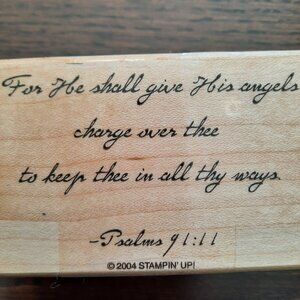 For He shall give His angels
charge over thee
to keep thee in all thy ways.
-Psalms 91:11
© 2004 STAMPIN' UP!